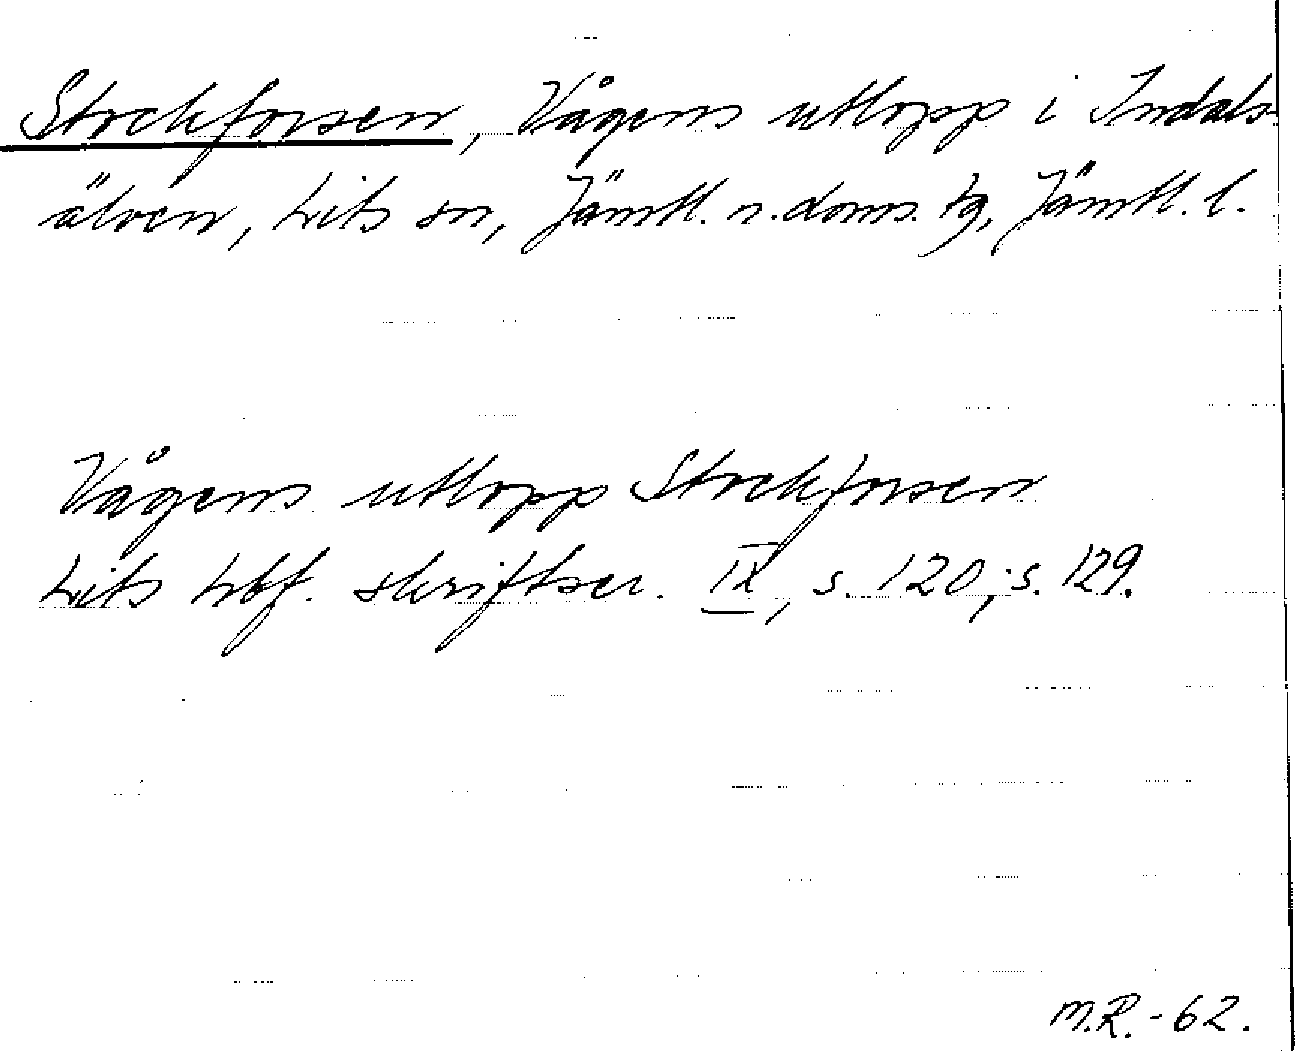 Stockforsen, Vågens utlopp i Indals-
älven, Lits sn, Jämtl. n. doms. tg, Jämtl. l.
Vågens utlopp Stockforsen
Lits hbf. skriftser. IX, s. 120, s. 129.
M.R. -62.